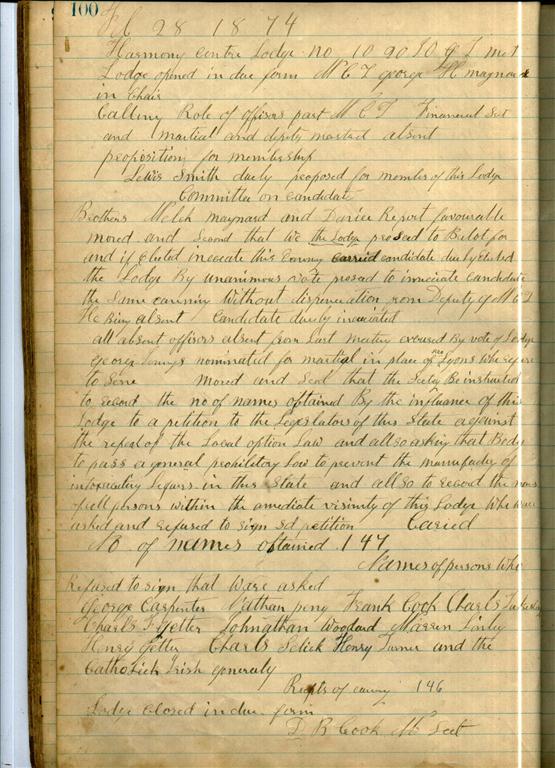 100
Feb 28 1874
Harmony Centre Lodge No 1090 I O G T met
Lodge opened in due form W C T George H Maynard
in Chair
Calling Role of offisers past W C T Finanical Sec
and martial and deputy marshal absent
propositions for membership
Lewis Smith duely proposed for member of this Lodge
Committee on candidate
Brothers Welch maynard and Darice Report favourable
moved and Second that we the Lodge prosed to Belot for
and if Elected inecate this Evening carried candidate duely Elected
the Lodge By unanimous vote prosed to inneciate candidate
the same evening without dispensation from Deputy G W C T
He Being absent Candidate duely inneciated
all absent offisers absent from Last meeting excused By vote of Lodge
George nominated for martial in place of Lyons who refuse
to Serve moved and Scd that the Secty Be instructed
to record the no of names obtained By the influance of this
Lodge to a petition to the Legeslators of this State against
the repeal of the Local option Law and allso asking that Body
to pass a general prohibitory Law to prevent the manufactry of
intoxicating Liquers in this State and allso to record the names
of all persons within the amediate visinity of this Lodge who ware
asked and refused to sign sd petition Caried
No of names obtained 147
Names of persons who
Refused to sign that ware asked
George Carpenter Nathan peny Frank Cook Charls
Charls F Yetter Johnathan Woodard Warren Finley
Henry Yetter Charls Selick Henry Turner and the
Catholick Irish generaly
Recpts of evening 146
Lodge closed in due form
D R Cook W Sect